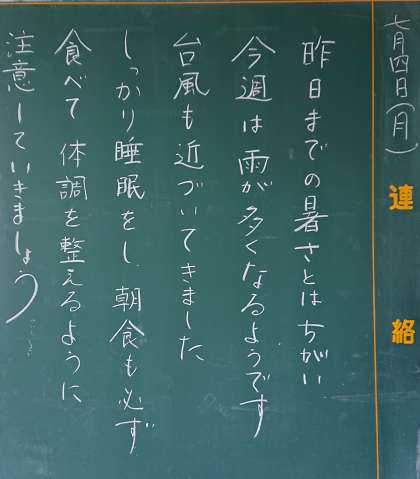 七月四日(月)
連絡
昨日までの暑さとはちがい
今週は雨が多くなるようです
台風も近づいてきました
しっかり睡眠をし、朝食も必ず
食べて体調を整えるように
注意していきましょう